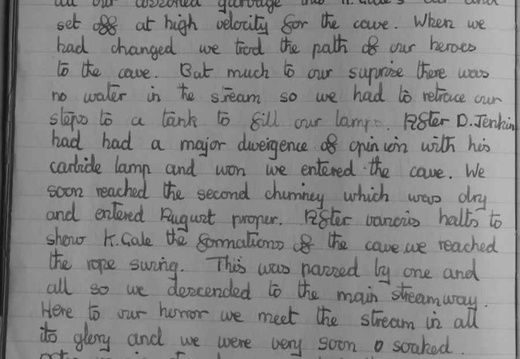 all our assorted garbage into K. Gale's car and
set off at high velocity for the cave. When we
had changed we trod the path of our heroes
to the cave. But much to our suprise there was
no water in the stream so we had to retrace our
steps to a tank to fill our lamps. After D. Jenkin
had had a major diveigence of opinion with his
carbide lamp and won we entered the cave. We
soon reached the second chimney which was dry
and entered August proper. After varicris halts to
show K. Gale the formations of the cave we reached
the rope swing. This was passed by one and
all so we descended to the main streamway.
Here to our horror we meet the stream in all
its glory and we were very soon soaked.